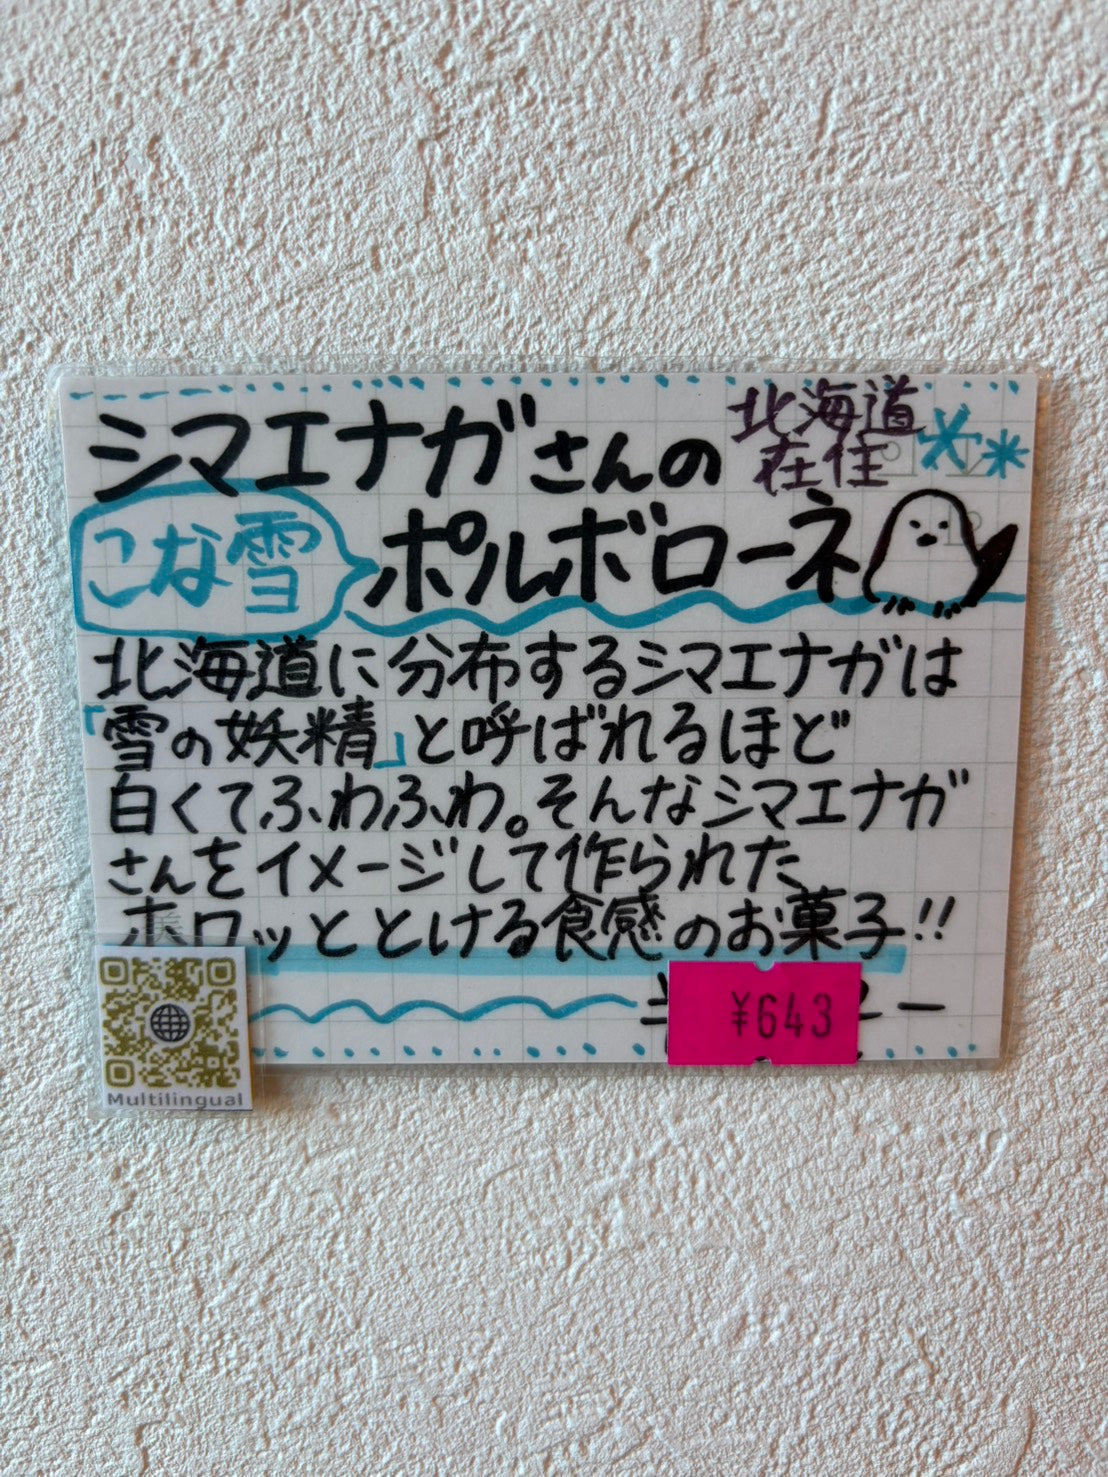 シマエナガさんの
北海道
在住
こな雪
ポルボローネ
北海道に分布するシマエナガは
「雪の妖精」と呼ばれるほど
白くてふわふわ。そんなシマエナガ
さんをイメージして作られた
ホロッととける食感のお菓子!!
¥643
Multilingual